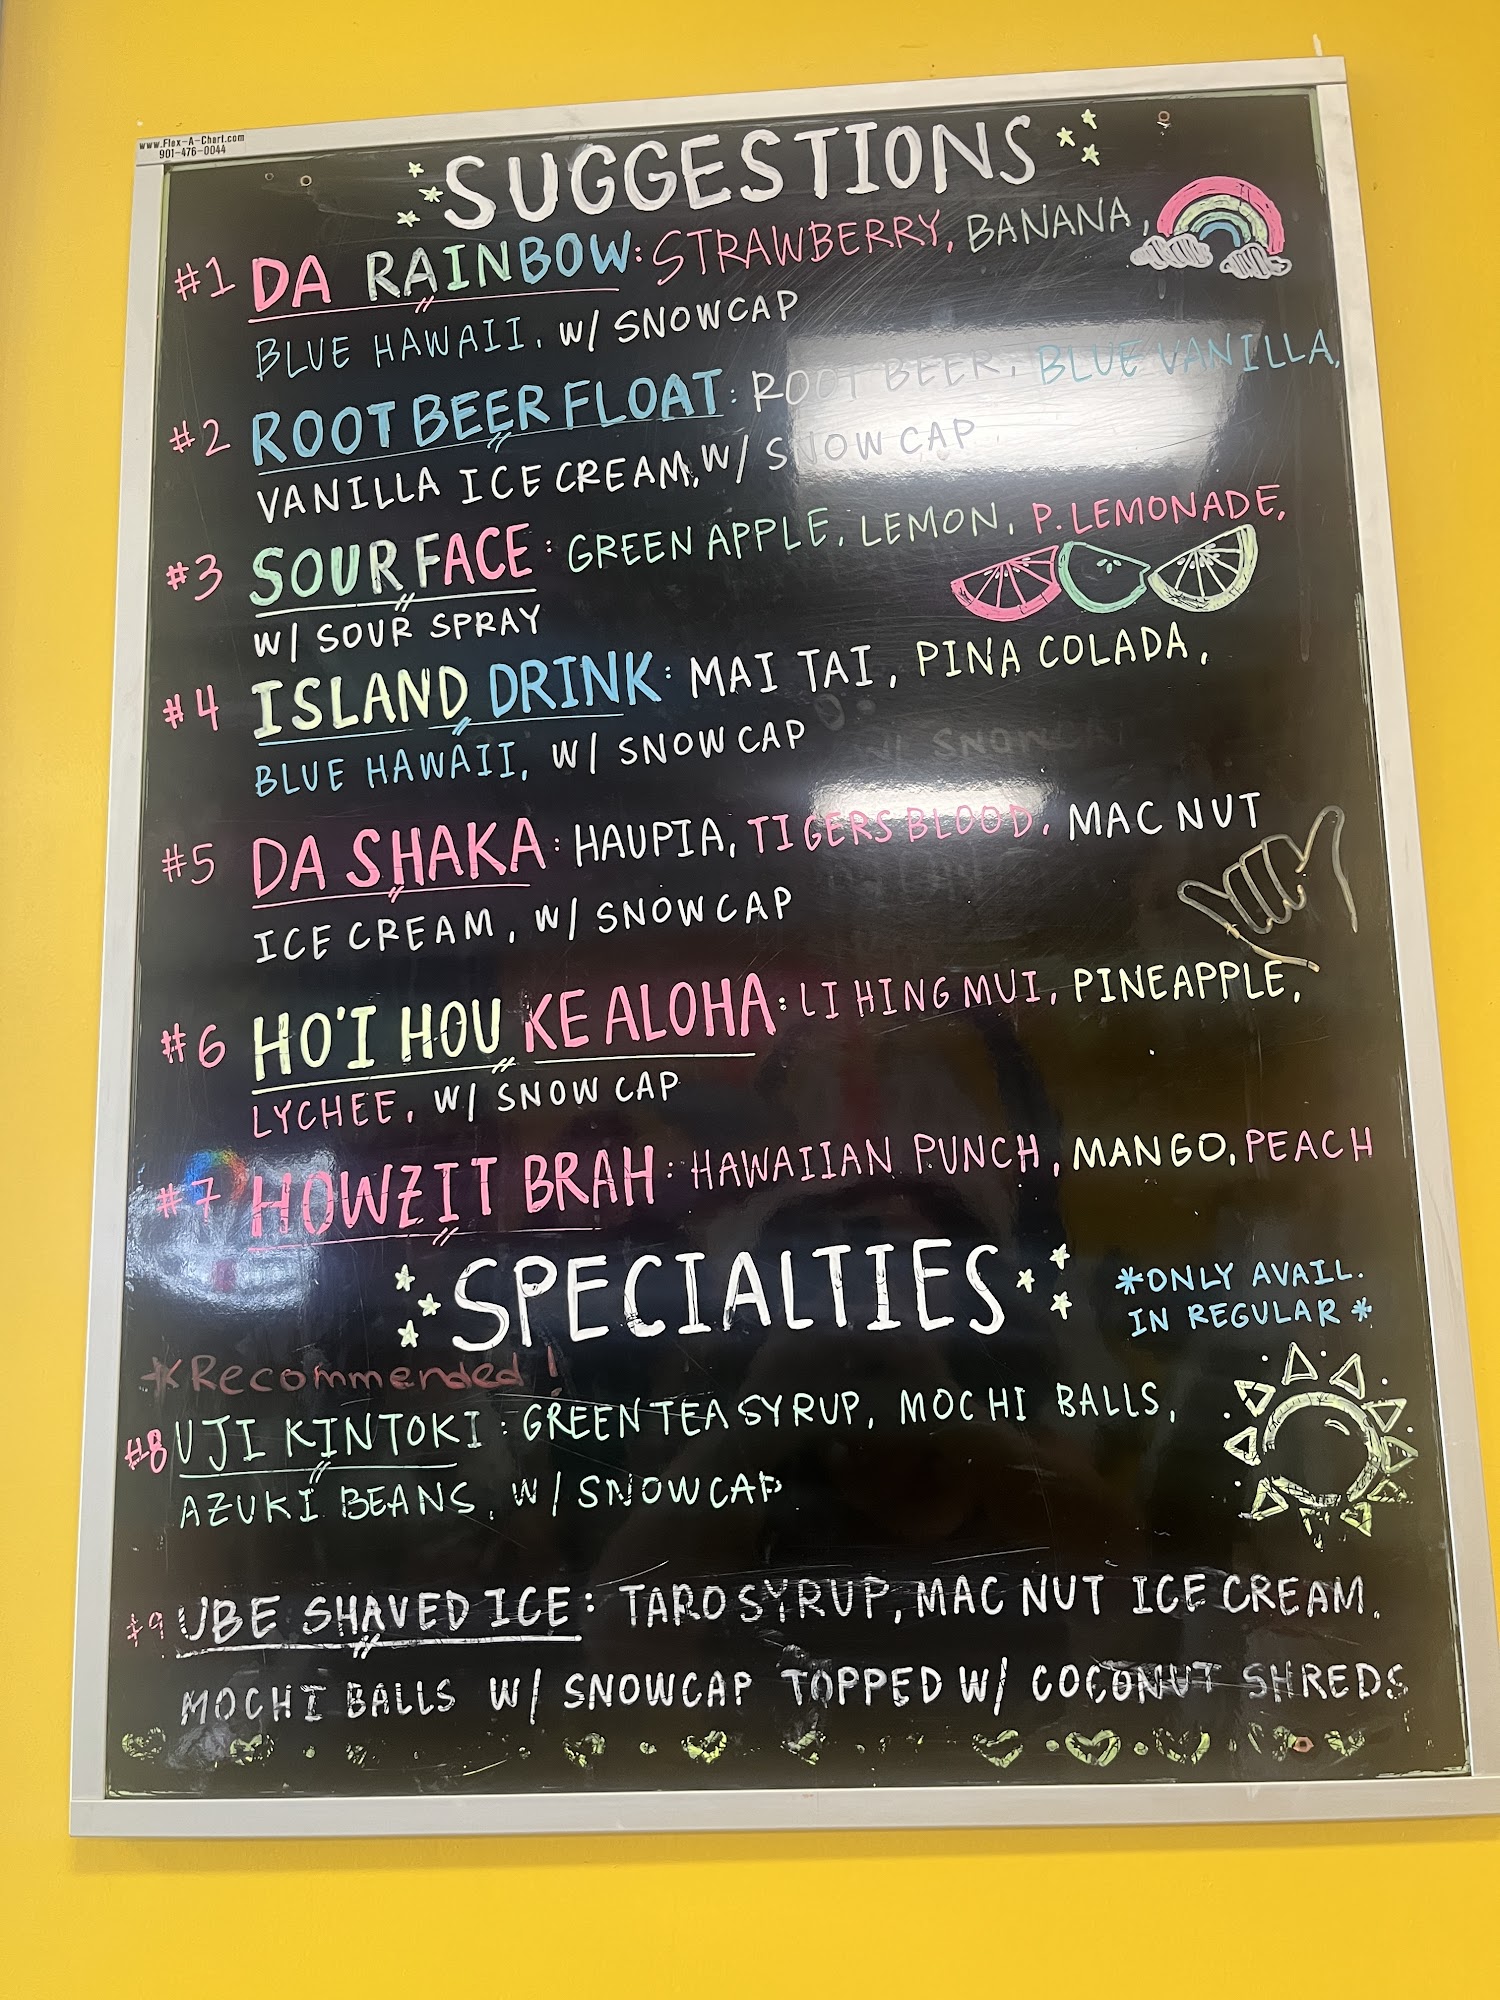 www.Flex-A-Chart.com
901-476-0044
SUGGESTIONS
#1 DA RAINBOW: STRAWBERRY, BANANA,
BLUE HAWAII, W/ SNOWCAP
#2 ROOT BEER FLOAT: ROOT BEER, BLUE VANILLA,
VANILLA ICE CREAM, W/ SNOW CAP
#3 SOUR FACE: GREEN APPLE, LEMON, P. LEMONADE,
W/ SOUR SPRAY
#4 ISLAND DRINK: MAI TAI, PINA COLADA,
BLUE HAWAII, W/ SNOW CAP
#5 DA SHAKA: HAUPIA, TIGERS BLOOD, MAC NUT
ICE CREAM, W/ SNOWCAP
#6 HO'I HOU KE ALOHA: LI HING MUI, PINEAPPLE,
LYCHEE, W/ SNOW CAP
#7 HOWZIT BRAH: HAWAIIAN PUNCH, MANGO, PEACH
SPECIALTIES
*ONLY AVAIL.
IN REGULAR *
*Recommended!
#8 UJI KINTOKI: GREEN TEA SYRUP, MOCHI BALLS,
AZUKI BEANS, W/ SNOWCAP
#9 UBE SHAVED ICE: TARO SYRUP, MAC NUT ICE CREAM,
MOCHI BALLS W/ SNOWCAP TOPPED W/ COCONUT SHREDS